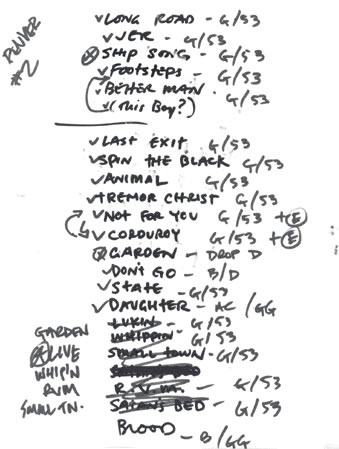 DENVER
#2
✓LONG ROAD - G/53
✓JER - G/53
SHIP SONG - G/53
✓FOOTSTEPS - G/53
✓BETTER MAN.
✓(This Boy?) G/53
✓LAST EXIT G/53
✓SPIN THE BLACK G/53
✓ANIMAL G/53
✓TREMOR CHRIST G/53
✓NOT FOR YOU G/53 +E
✓CORDUROY G/53 +E
GARDEN - DROP D
✓DON'T GO - B/D
✓STATE - G/53
✓DAUGHTER - AC /GG
GARDEN LUKIN - G/53
ALIVE WHIPPIN G/53
WHIP'N SMALL TOWN - G/53
RVM SATAN'S BED
SMALL TN. R.V.M. - G/53
SATAN'S BED - G/53
BLOOD - B/GG